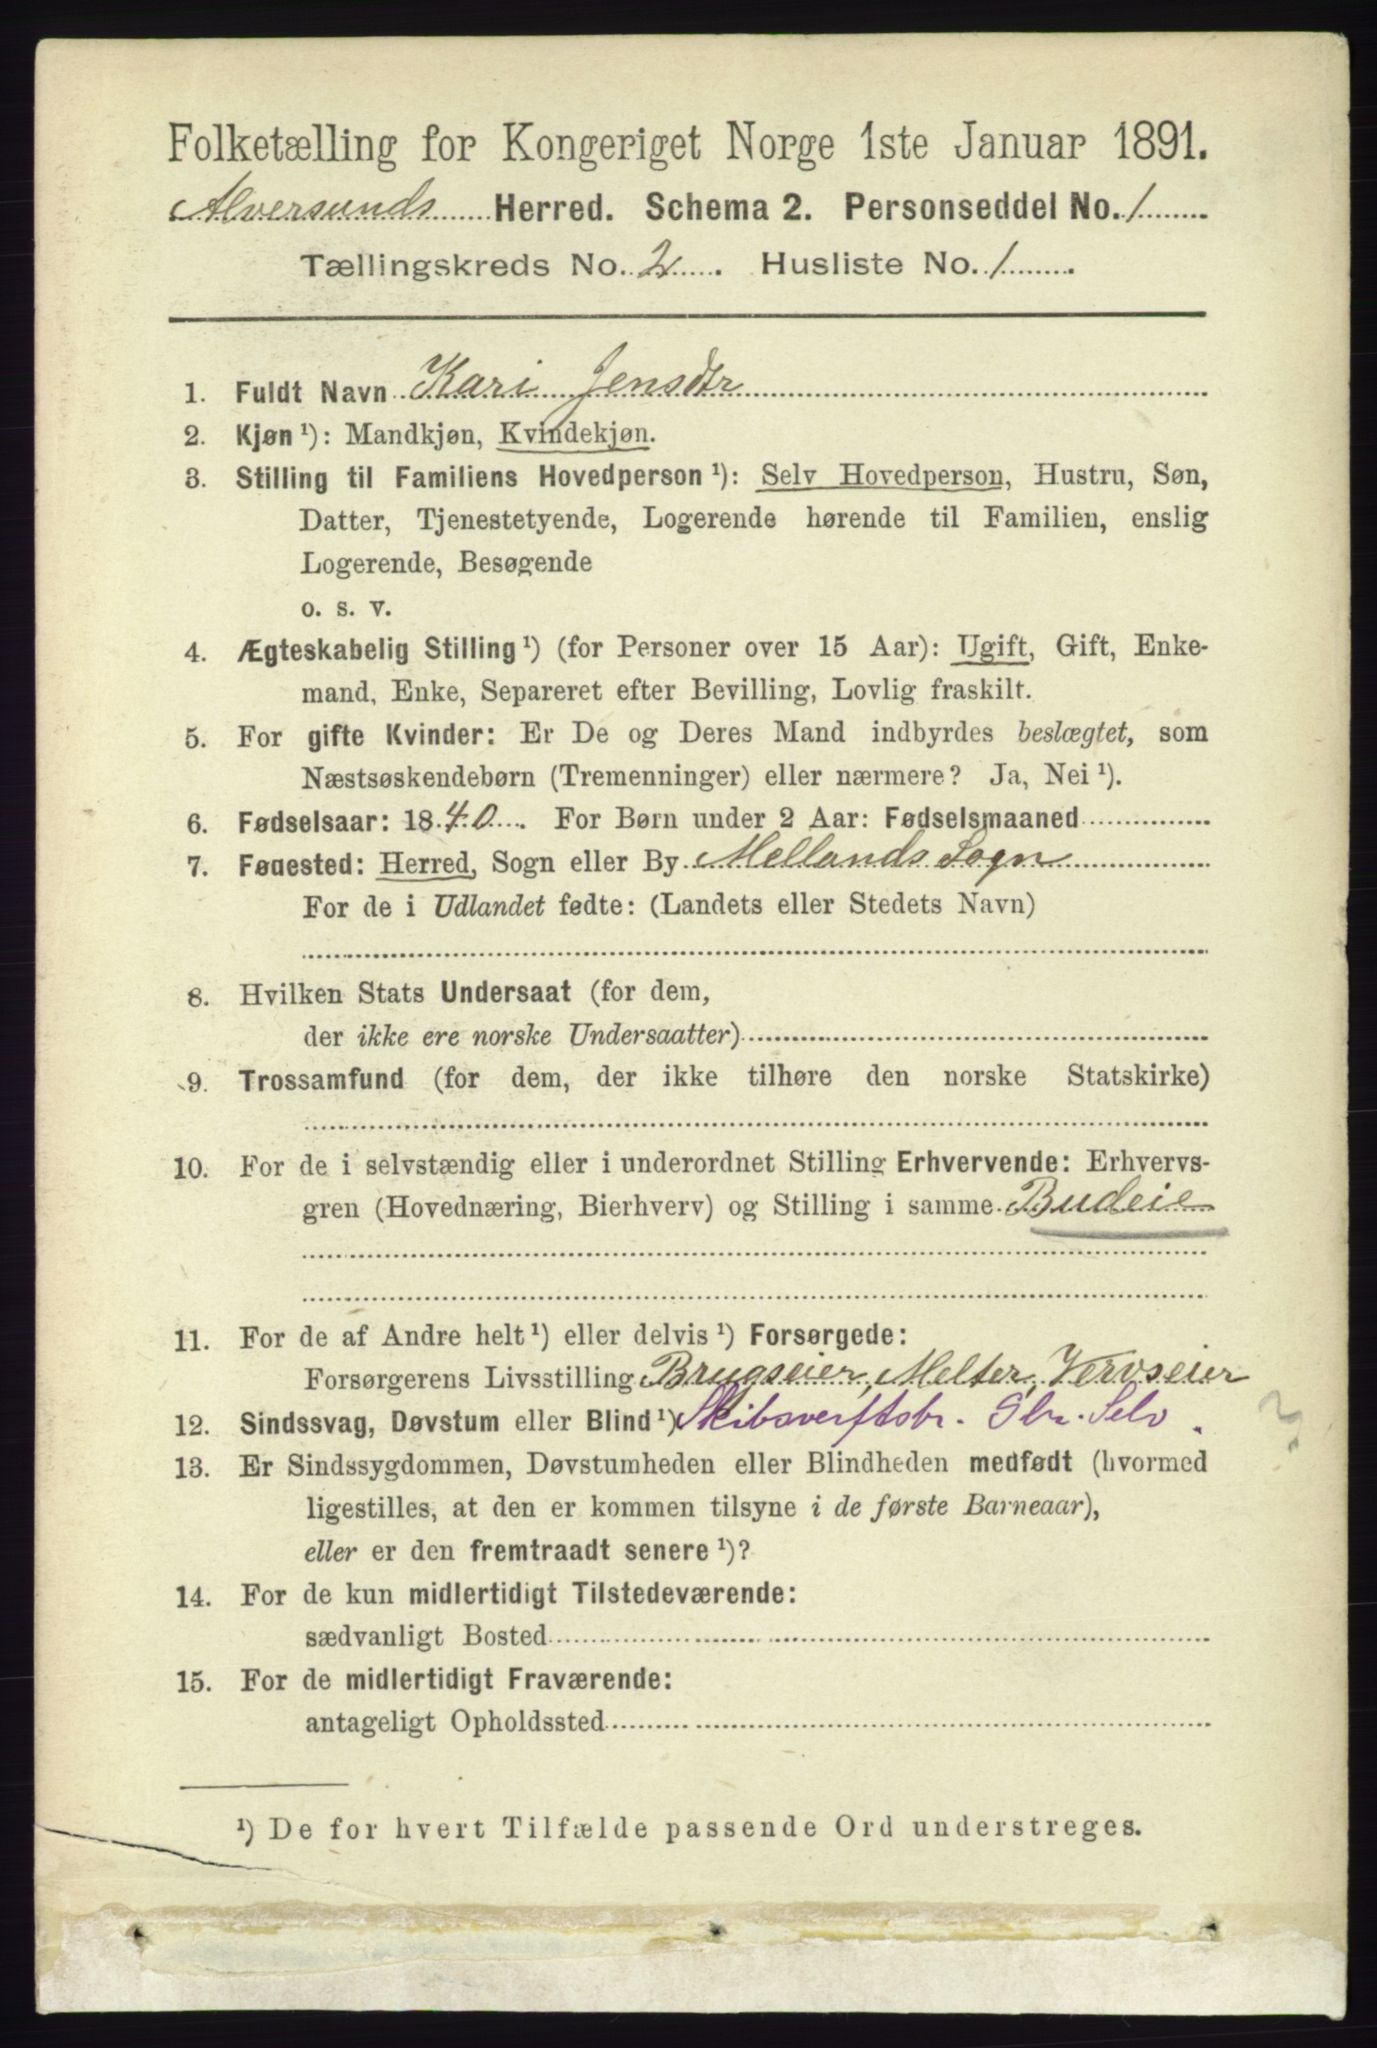 Folketælling for Kongeriget Norge 1ste Januar 1891.
Alversunds Herred. Schema 2. Personseddel No. 1
Tællingskreds No. 2. Husliste No. 1.
1. Fuldt Navn Kari Jensdtr
2. Kjøn ¹): Mandkjøn, Kvindekjøn.
3. Stilling til Familiens Hovedperson ¹): Selv Hovedperson, Hustru, Søn,
Datter, Tjenestetyende, Logerende hørende til Familien, enslig
Logerende, Besøgende
o. s. v.
4. Ægteskabelig Stilling ¹) (for Personer over 15 Aar): Ugift, Gift, Enke-
mand, Enke, Separeret efter Bevilling, Lovlig fraskilt.
5. For gifte Kvinder: Er De og Deres Mand indbyrdes beslægtet, som
Næstsøskendebørn (Tremenninger) eller nærmere? Ja, Nei ¹).
6. Fødselsaar: 1840. For Børn under 2 Aar: Fødselsmaaned
7. Fødested: Herred, Sogn eller By Mellands Sogn
For de i Udlandet fødte: (Landets eller Stedets Navn)
8. Hvilken Stats Undersaat (for dem,
der ikke ere norske Undersaatter)
9. Trossamfund (for dem, der ikke tilhøre den norske Statskirke)
10. For de i selvstændig eller i underordnet Stilling Erhvervende: Erhvervs-
gren (Hovednæring, Bierhverv) og Stilling i samme Budeie
11. For de af Andre helt ¹) eller delvis ¹) Forsørgede:
Forsørgerens Livsstilling Brugseier, Melter, Vervseier
12. Sindssvag, Døvstum eller Blind ¹) Skibsverftsbr. Gbr. Selv. ?
13. Er Sindssygdommen, Døvstumheden eller Blindheden medfødt (hvormed
ligestilles, at den er kommen tilsyne i de første Barneaar),
eller er den fremtraadt senere ¹)?
14. For de kun midlertidigt Tilstedeværende:
sædvanligt Bosted
15. For de midlertidigt Fraværende:
antageligt Opholdssted
¹) De for hvert Tilfælde passende Ord understreges.